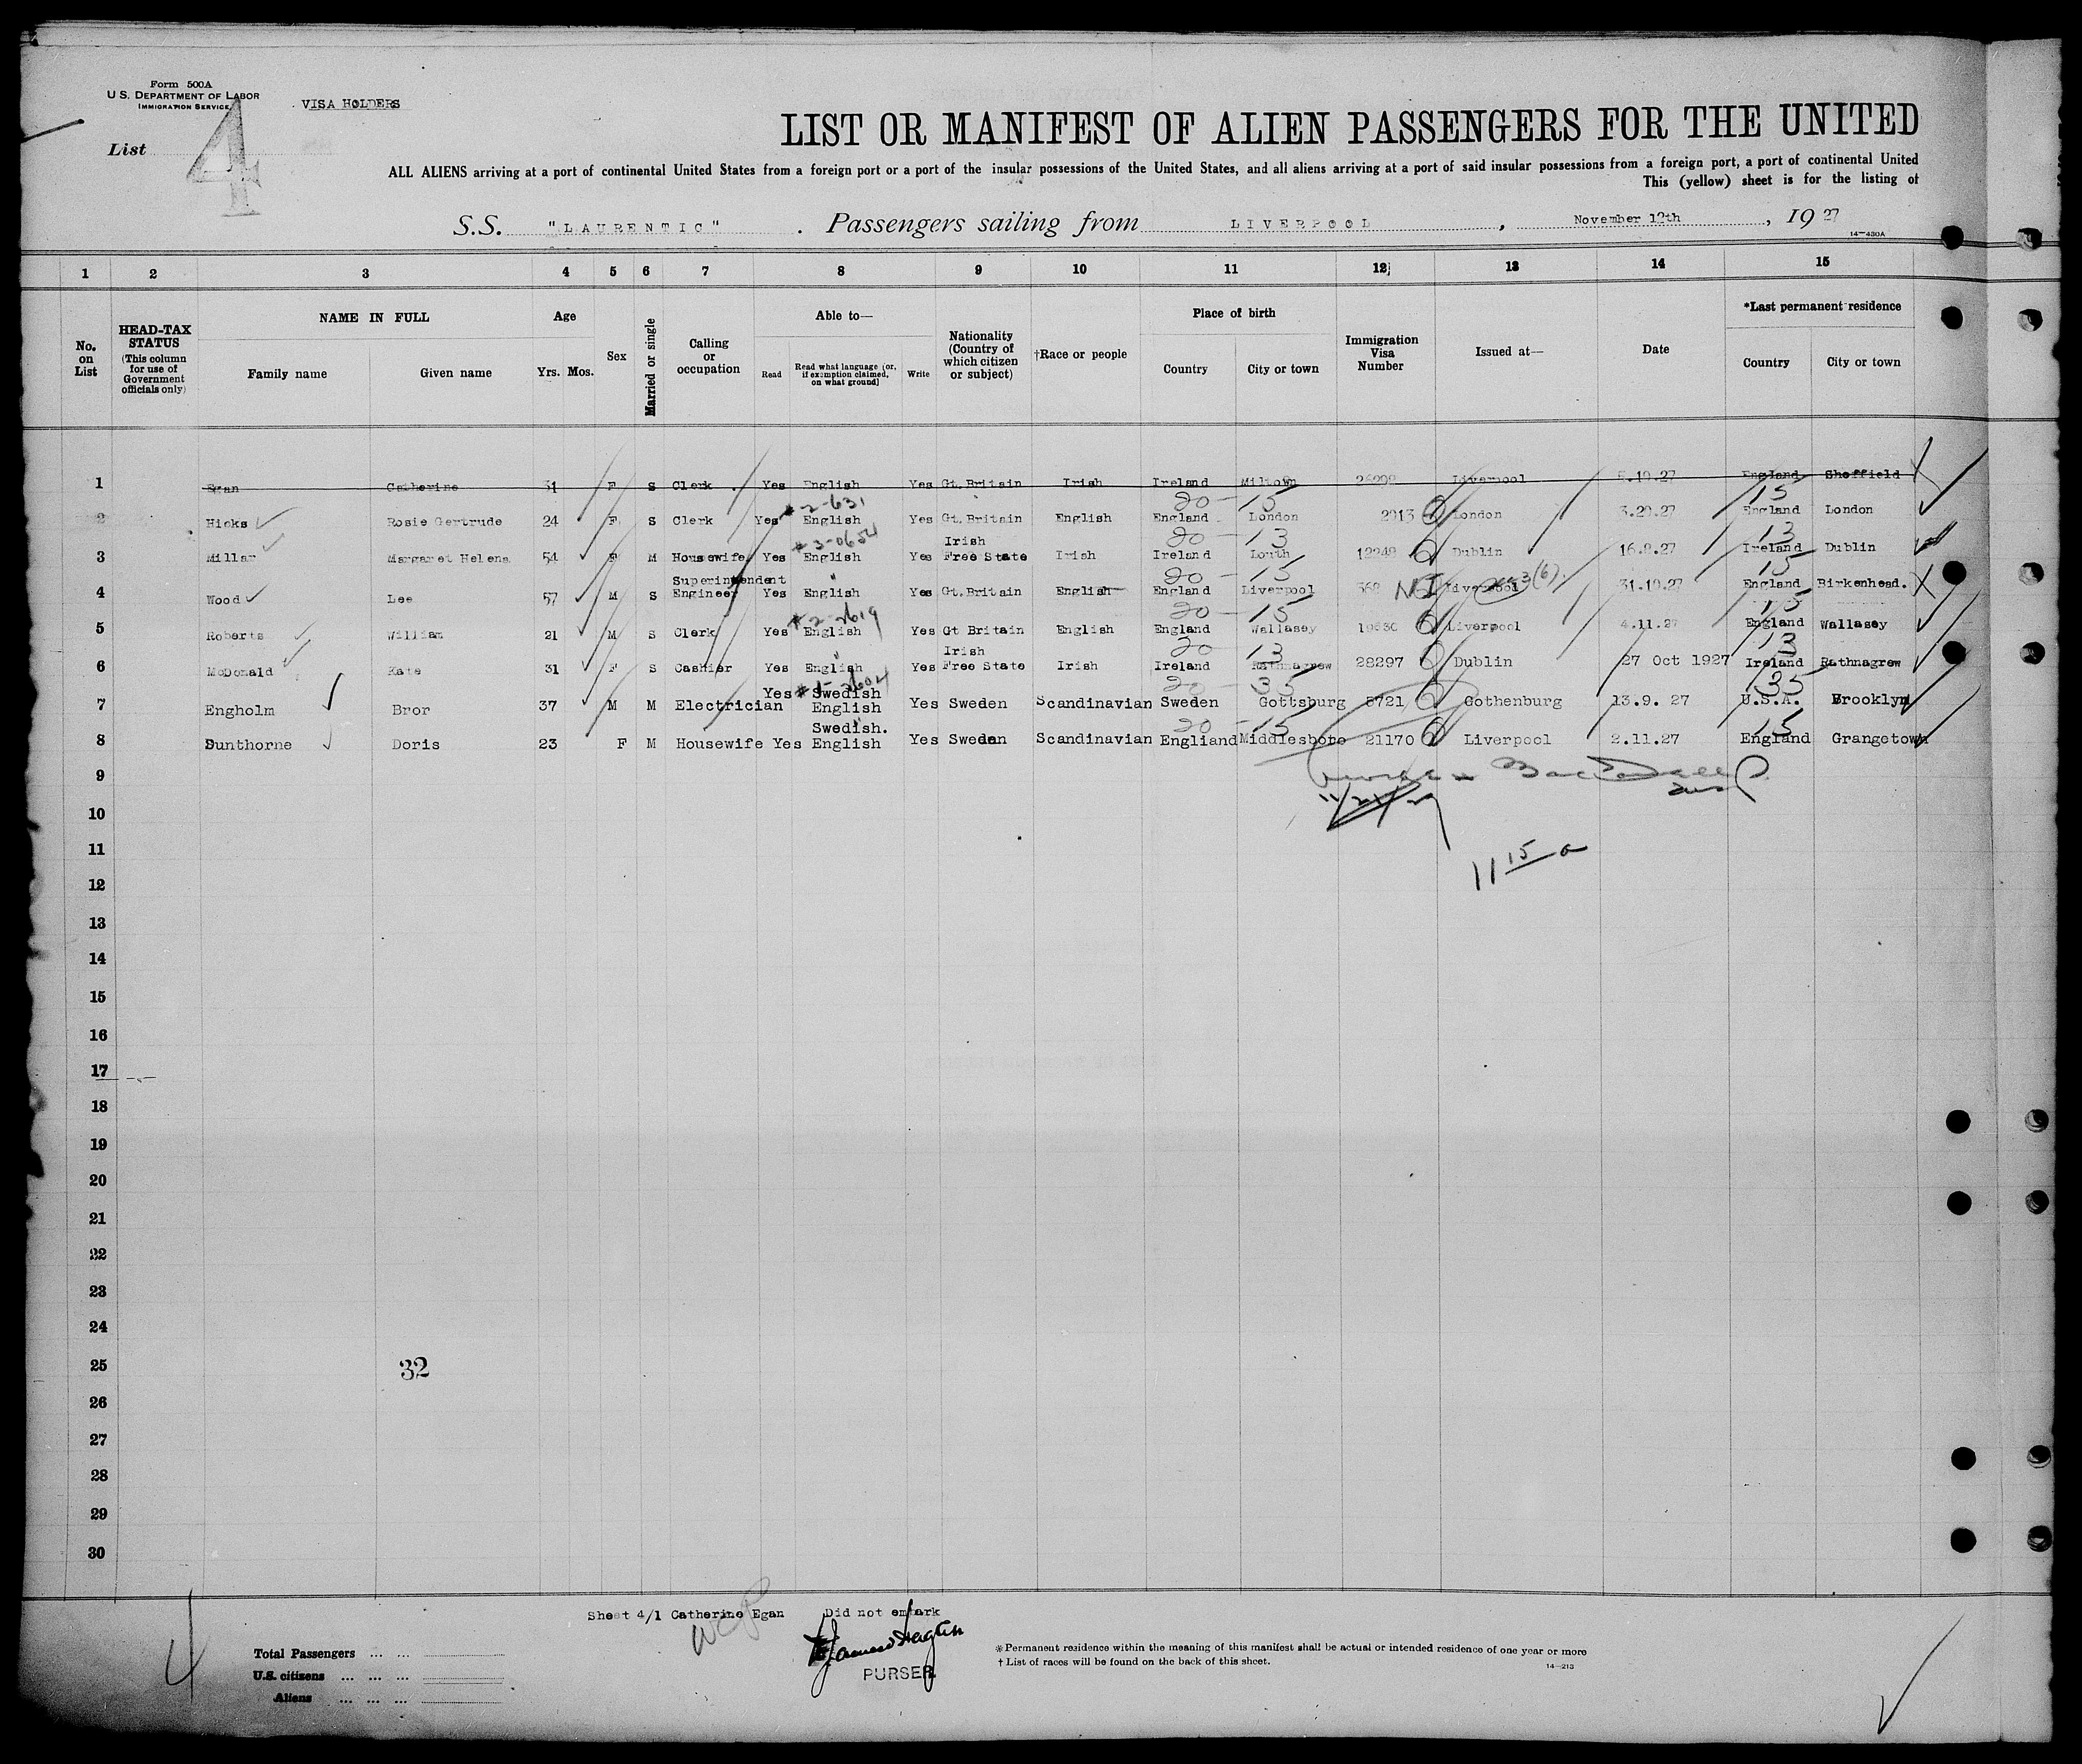 Form 500A
U.S. DEPARTMENT OF LABOR
IMMIGRATION SERVICE
VISA HOLDERS
List 4
LIST OR MANIFEST OF ALIEN PASSENGERS FOR THE UNITED
ALL ALIENS arriving at a port of continental United States from a foreign port or a port of the insular possessions of the United States, and all aliens arriving at a port of said insular possessions from a foreign port, a port of continental United
This (yellow) sheet is for the listing of
S.S. "LAURENTIC" . Passengers sailing from LIVERPOOL , November 12th , 19 27
14—430A
1 2 3 4 5 6 7 8 9 10 11 12 13 14 15
No. on List
HEAD-TAX STATUS (This column for use of Government officials only)
NAME IN FULL
Family name Given name
Age
Yrs. Mos.
Sex
Married or single
Calling or occupation
Able to—
Read Read what language (or, if exemption claimed, on what ground) Write
Nationality (Country of which citizen or subject)
†Race or people
Place of birth
Country City or town
Immigration Visa Number
Issued at—
Date
*Last permanent residence
Country City or town
1 Egan Catherine 31 F S Clerk Yes English Yes Gt.Britain Irish Ireland Miltown 26298 Liverpool 5.10.27 England Sheffield
#2-631 20 - 15 15
2 Hicks Rosie Gertrude 24 F S Clerk Yes English Yes Gt.Britain English England London 2913 London 3.29.27 England London
#3-0654 Irish 20 - 13 13
3 Millar Margaret Helena 54 F M Housewife Yes English Yes Free State Irish Ireland Louth 12248 Dublin 16.8.27 Ireland Dublin
Superintendent 20 - 15 15
4 Wood Lee 57 M S Engineer Yes English Yes Gt.Britain English England Liverpool 568 NI Liverpool 3(6). 31.10.27 England Birkenhead.
#2-2619 20 - 15 15
5 Roberts William 21 M S Clerk Yes English Yes Gt Britain English England Wallasey Liverpool 4.11.27 England Wallasey
" Irish 20 - 13 13
6 McDonald Kate 31 F S Cashier Yes English Yes Free State Irish Ireland Rathnagrew 28297 Dublin 27 Oct 1927 Ireland Rathnagrew
#1-2604 Swedish 20 - 35 35
7 Engholm Bror 37 M M Electrician Yes English Yes Sweden Scandinavian Sweden Gottsburg 8721 Gothenburg 13.9. 27 U.S.A. Brooklyn
Swedish. 20 - 15 15
8 Sunthorne Doris 23 F M Housewife Yes English Yes Sweden Scandinavian Engliand Middlesboro 21170 Liverpool 2.11.27 England Grangetown
9
10
11 11 15 a
12
13
14
15
16
17
18
19
20
21
22
23
24
25 32
26
27
28
29
30
Sheet 4/1 Catherine Egan Did not embark
PURSER
4
Total Passengers ... ...
U.S. citizens ... ... ...
Aliens ... ... ...
*Permanent residence within the meaning of this manifest shall be actual or intended residence of one year or more
† List of races will be found on the back of this sheet.
14—213